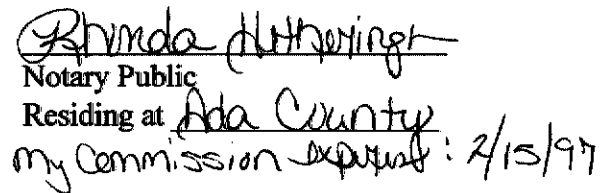 Rhonda
Notary Public
Residing at Ada County
My Commission expires: 2/15/97